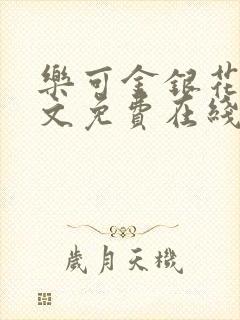 樂可金銀花
文免費在綫
歲月天機